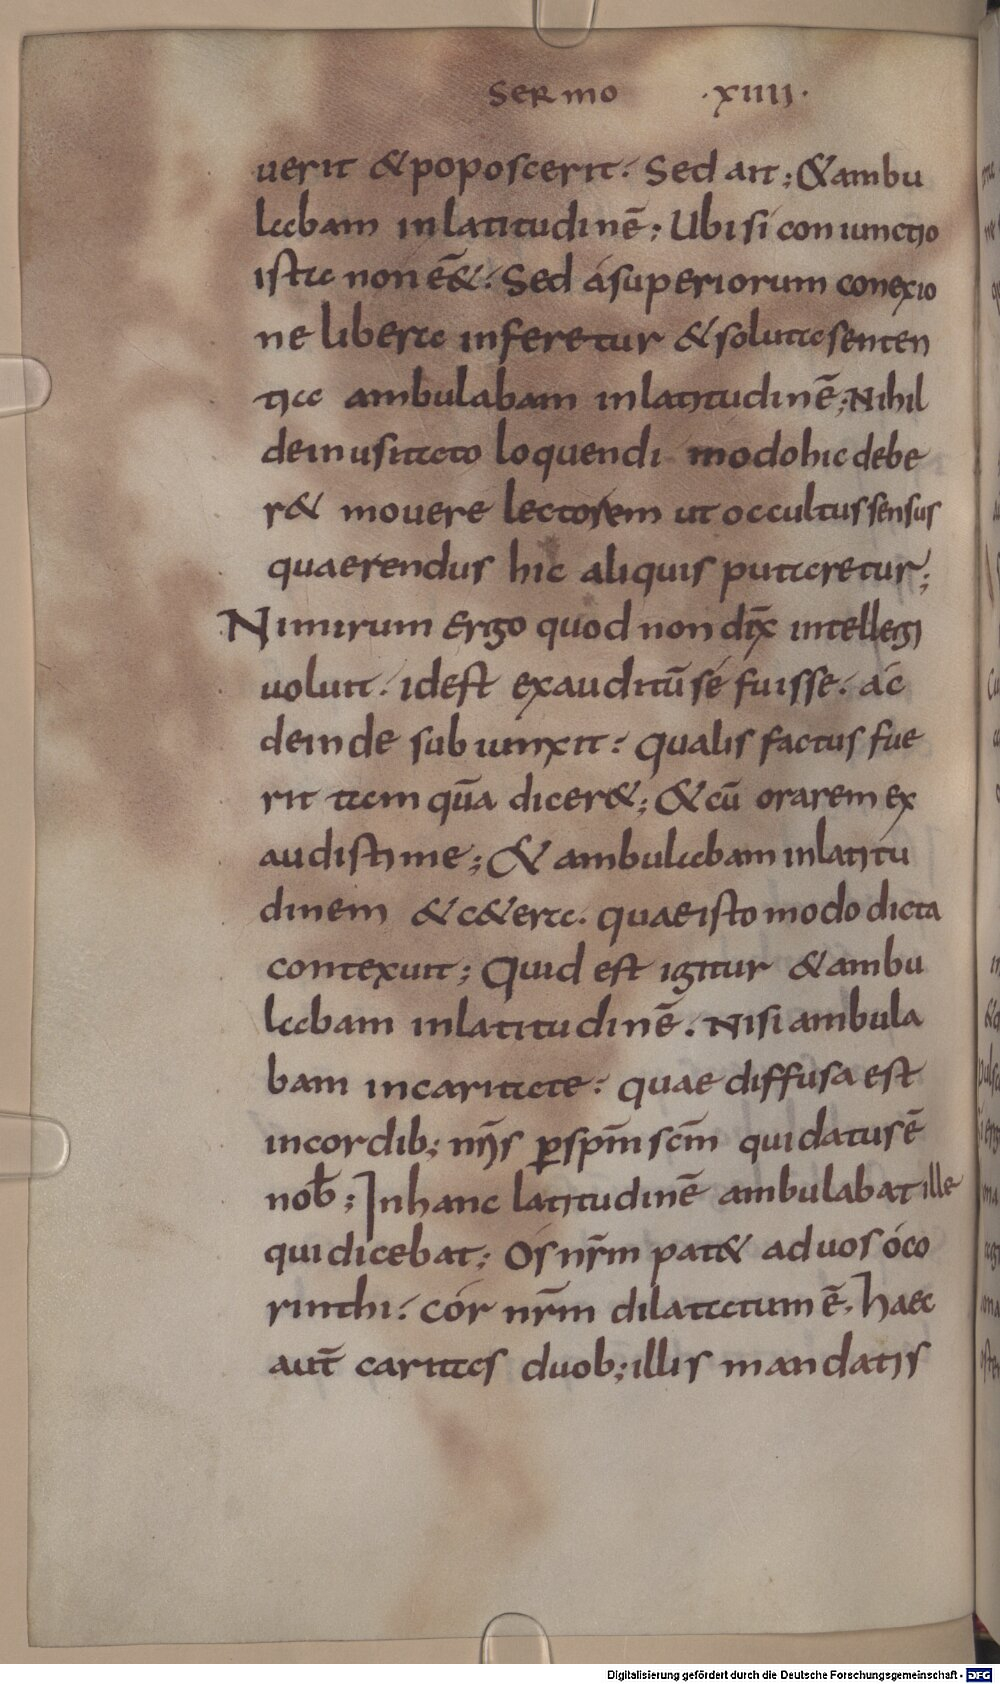 Sermo ·xiiii·
uerit & poposcerit. Sed ait; & ambu
labam in latitudinē; Ubi si coniunctio
ista non ēē&. Sed á superiorum conexio
ne libera inferetur & soluta senten
tia ambulabam in latitudinē; Nihil
de inusitato loquendi modo hic debe
r& mouere lectorem ut occultus sensus
quaerendus hic aliquis putaretur;
Nimirum ergo quod non dix̄ intellegi
uoluit. id est exauditū sé fuisse. ác
deinde subiunxit. qualis factus fue
rit tam quā dicer&; & cū orarem ex
audisti me; & ambulabam in latitu
dinem & c&era. quae isto modo dicta
contexuit; Quid est igitur & ambu
labam in latitudinē. Nisi ambula
bam in caritate. quae diffusa est
in cordib; nr̄is ꝑ spm̄ scm̄ qui datus ē
nob̄; In hanc latitudinē ambulabat ille
qui dicebat; Ós nr̄m pat& ad uos ó co
rinthi. cór nr̄m dilatatum ē. haec
aut̄ caritas duob; illis mandatis
Digitalisierung gefördert durch die Deutsche Forschungsgemeinschaft - DFG